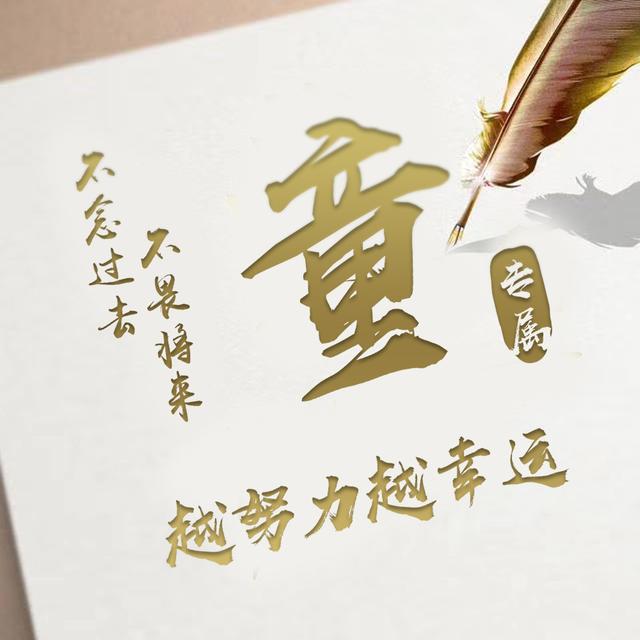 不念过去
不畏将来
童
专属
越努力越幸运